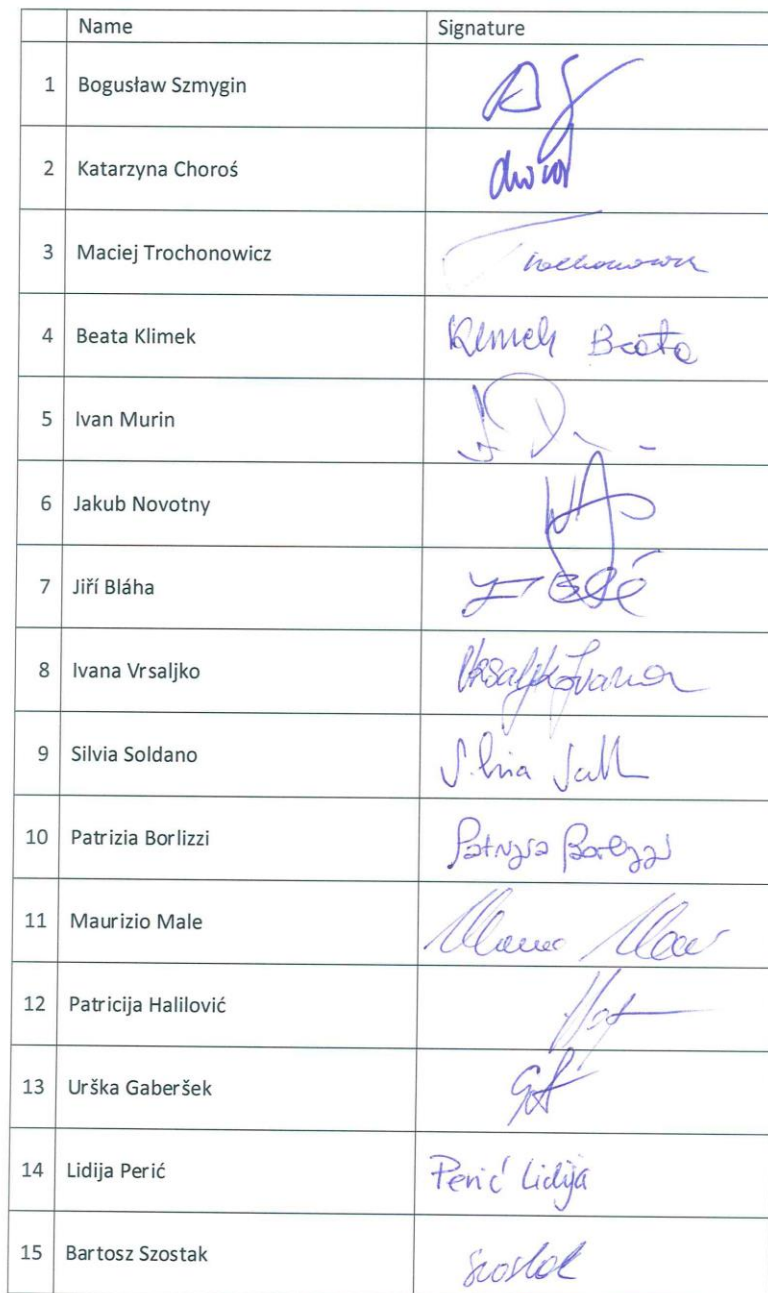 Name Signature
1 Bogusław Szmygin
2 Katarzyna Choroś
3 Maciej Trochonowicz
4 Beata Klimek Klimek Beata
5 Ivan Murin
6 Jakub Novotny
7 Jiří Bláha
8 Ivana Vrsaljko Vrsaljko Ivana
9 Silvia Soldano Silvia
10 Patrizia Borlizzi Patrizia Borlizzi
11 Maurizio Male
12 Patricija Halilović
13 Urška Gaberšek
14 Lidija Perić Perić Lidija
15 Bartosz Szostak Szostak